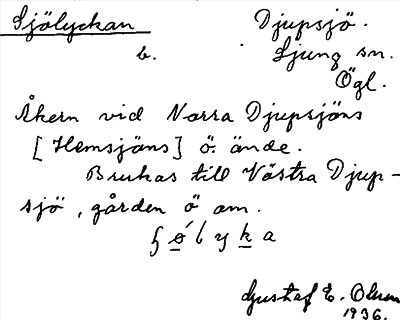 Sjölyckan Djupsjö.
b. Ljung sn.
Ögl.
Åkern vid Norra Djupsjöns
[Hemsjöns] ö. ände.
Brukas till Västra Djup-
sjö, gården ö om.
Gustaf E. Olsson
1936.